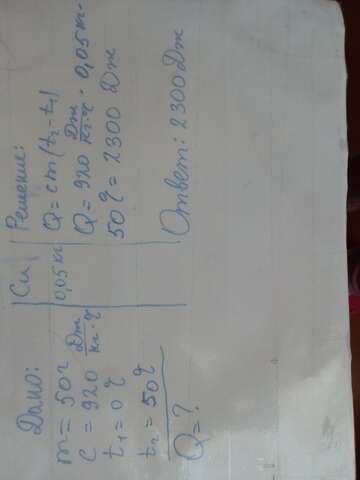 Дано:
m = 50г
c = 920 Дж/кг·°С
t₁ = 0 °С
t₂ = 50 °С
Q = ?
Си
0,05 кг
Решение:
Q = cm(t₂ - t₁)
Q = 920 Дж/кг·°С · 0,05 кг ·
50 °С = 2300 Дж
Ответ: 2300 Дж